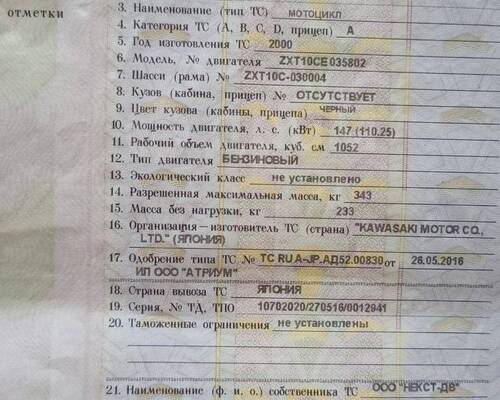 отметки
3. Наименование (тип ТС) МОТОЦИКЛ
4. Категория ТС (А, В, С, D, прицеп) А
5. Год изготовления ТС 2000
6. Модель, № двигателя ZXT10CE035802
7. Шасси (рама) № ZXT10C-030004
8. Кузов (кабина, прицеп) № ОТСУТСТВУЕТ
9. Цвет кузова (кабины, прицепа) ЧЕРНЫЙ
10. Мощность двигателя, л. с. (кВт) 147 (110.25)
11. Рабочий объем двигателя, куб. см 1052
12. Тип двигателя БЕНЗИНОВЫЙ
13. Экологический класс не установлено
14. Разрешенная максимальная масса, кг 343
15. Масса без нагрузки, кг 233
16. Организация—изготовитель ТС (страна) "KAWASAKI MOTOR CO.,
LTD." (ЯПОНИЯ)
17. Одобрение типа ТС № ТС RU А-JP.АД52.00830 от 26.05.2016
ИП ООО "АТРИУМ"
18. Страна вывоза ТС ЯПОНИЯ
19. Серия, № ТД, ТПО 10702020/270516/0012941
20. Таможенные ограничения не установлены
21. Наименование (ф. и. о.) собственника ТС ООО "НЕКСТ-ДВ"